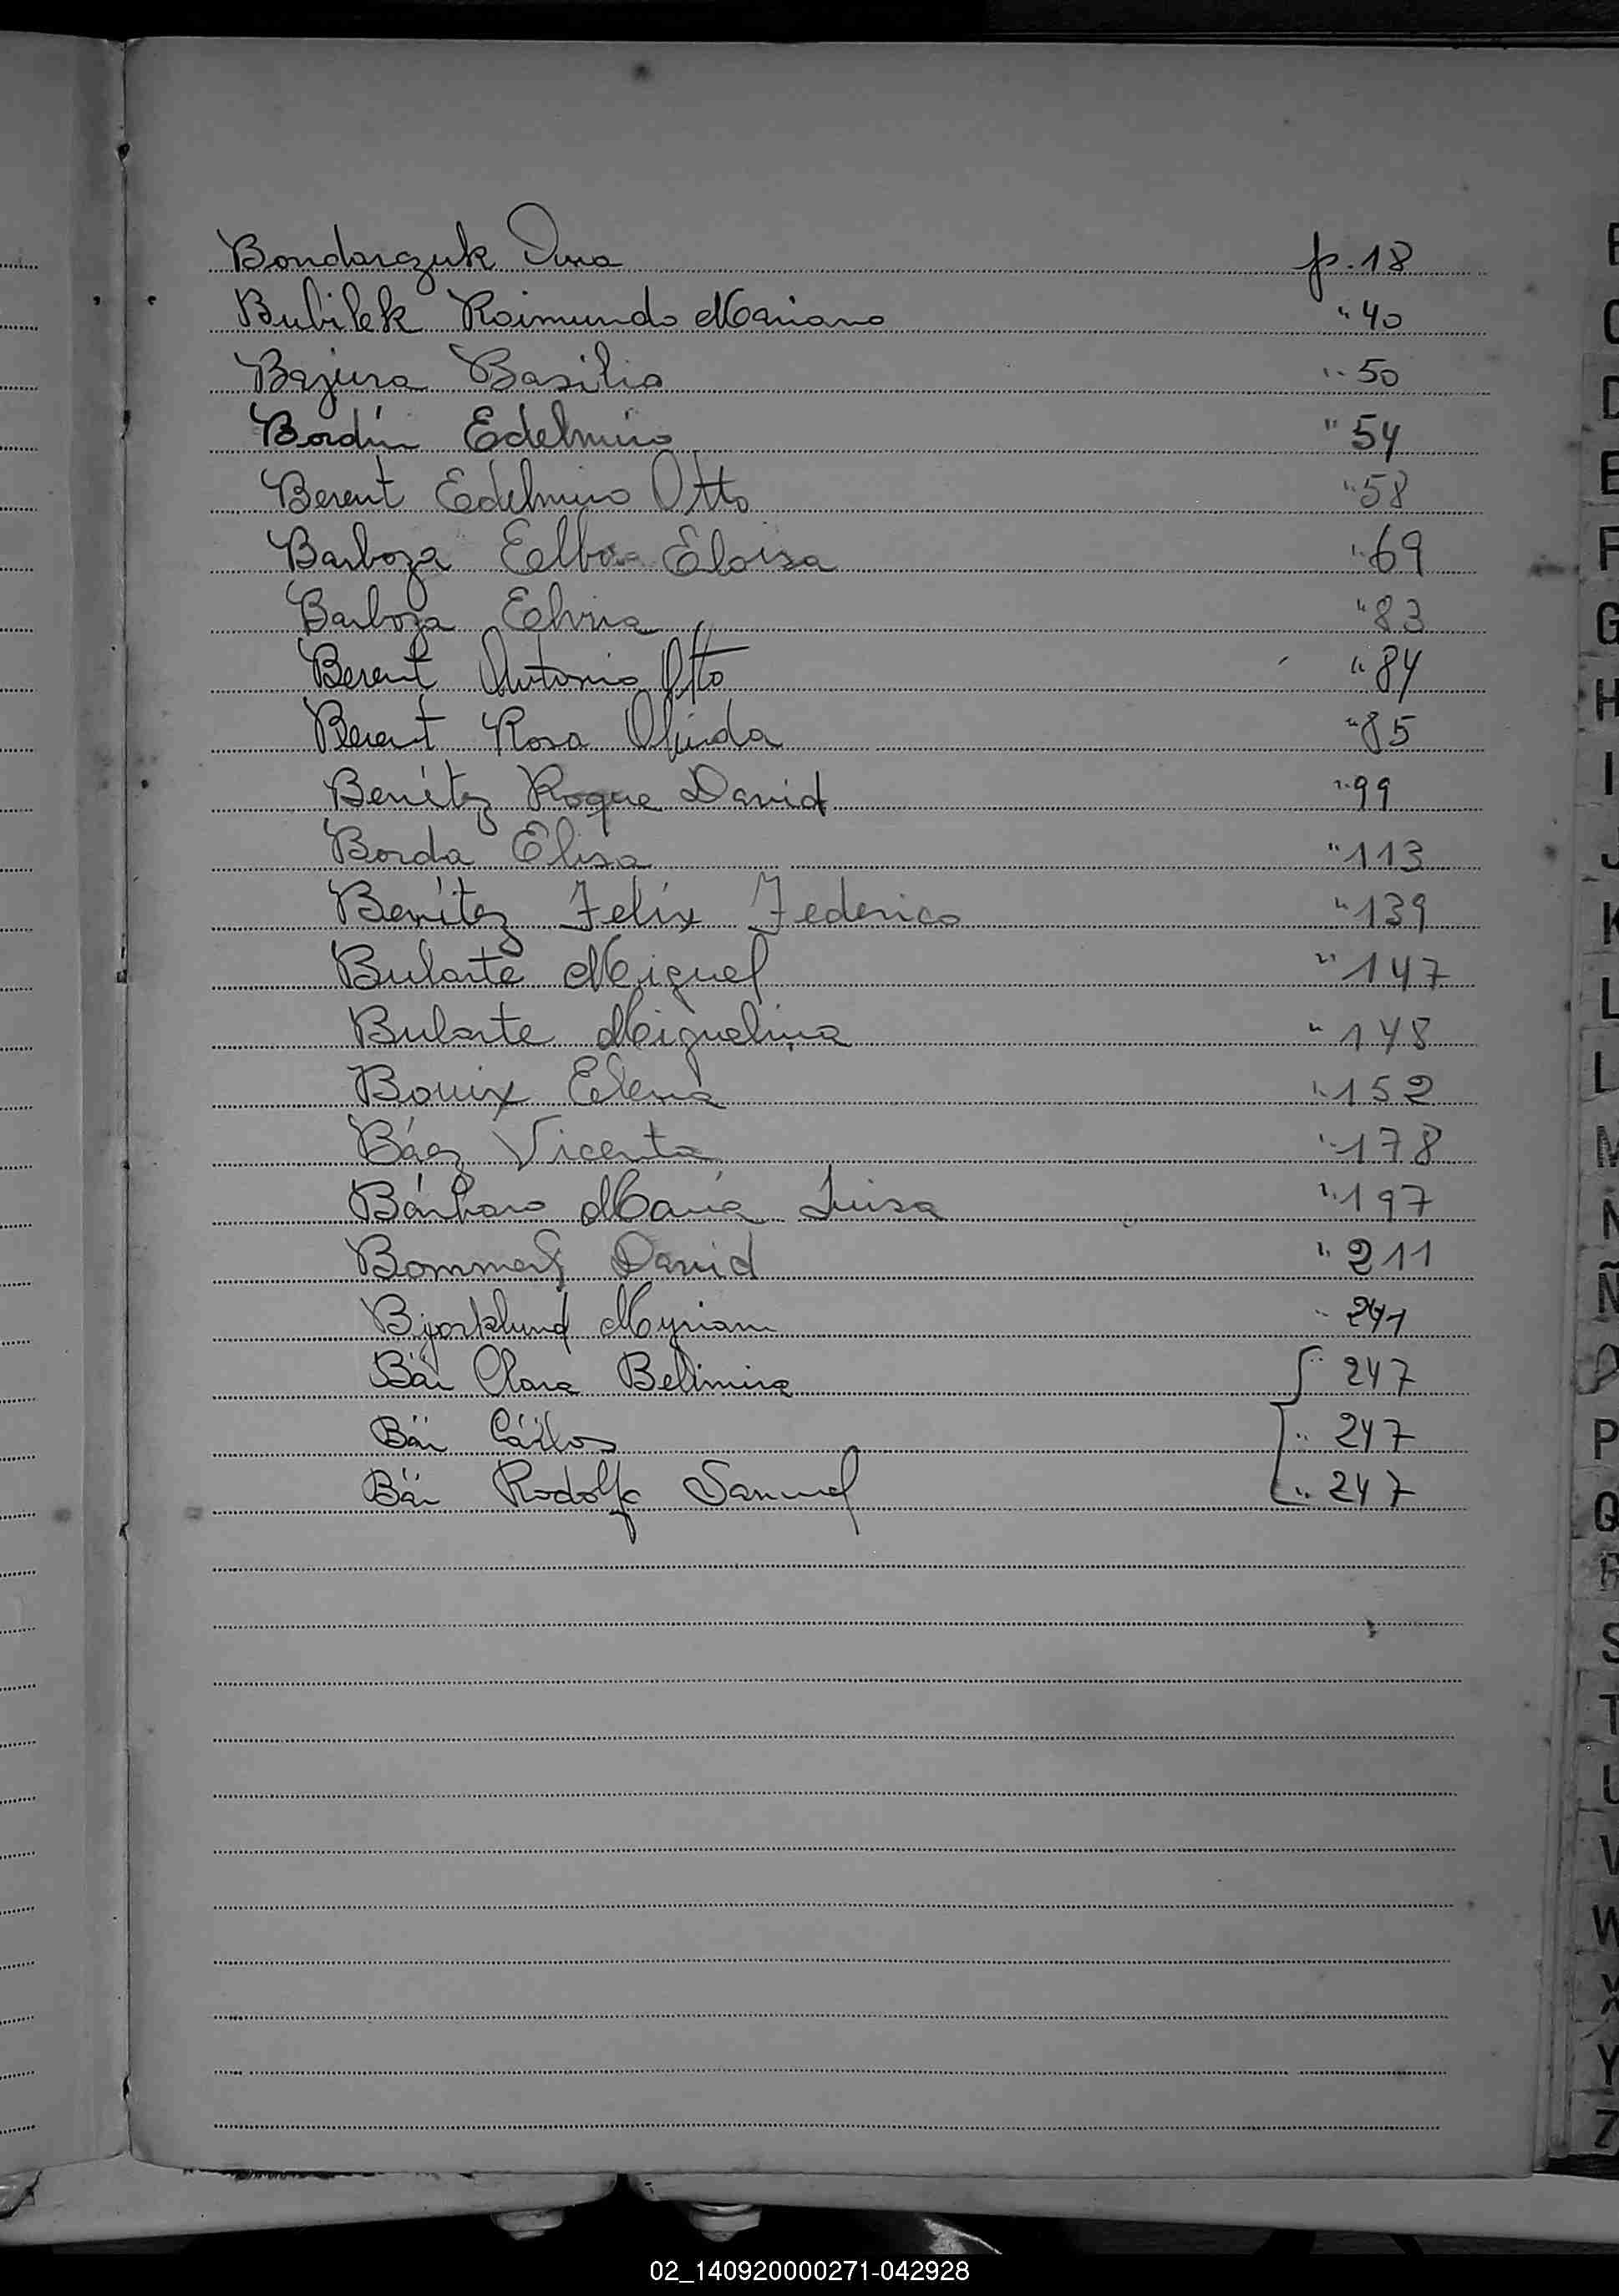 Bondarczuk Dina p. 18
Bubilek Raimundo Mariano " 40
Bazura Basilio " 50
Bordín Edelmiro " 54
Berent Edelmiro Otto " 58
Barboza Elba Eloisa " 69
Barboza Elvira " 83
Berent Antonio Otto " 84
Berent Rosa Olinda " 85
Benítez Roque David " 99
Borda Elisa " 113
Benítez Felix Federico " 139
Bularte Miguel " 147
Bularte Miguelina " 148
Bouix Elena " 152
Báez Vicenta " 178
Bárbaro María Luisa " 197
David " 211
Bjorklund Myriam " 241
Bär Clara Belimira " 247
Bär Cárlos " 247
Bär Rodolfo Samuel " 247
E
F
G
H
I
J
K
L
M
N
Ñ
P
Q
R
S
T
U
V
W
X
Y
Z
02_140920000271-042928